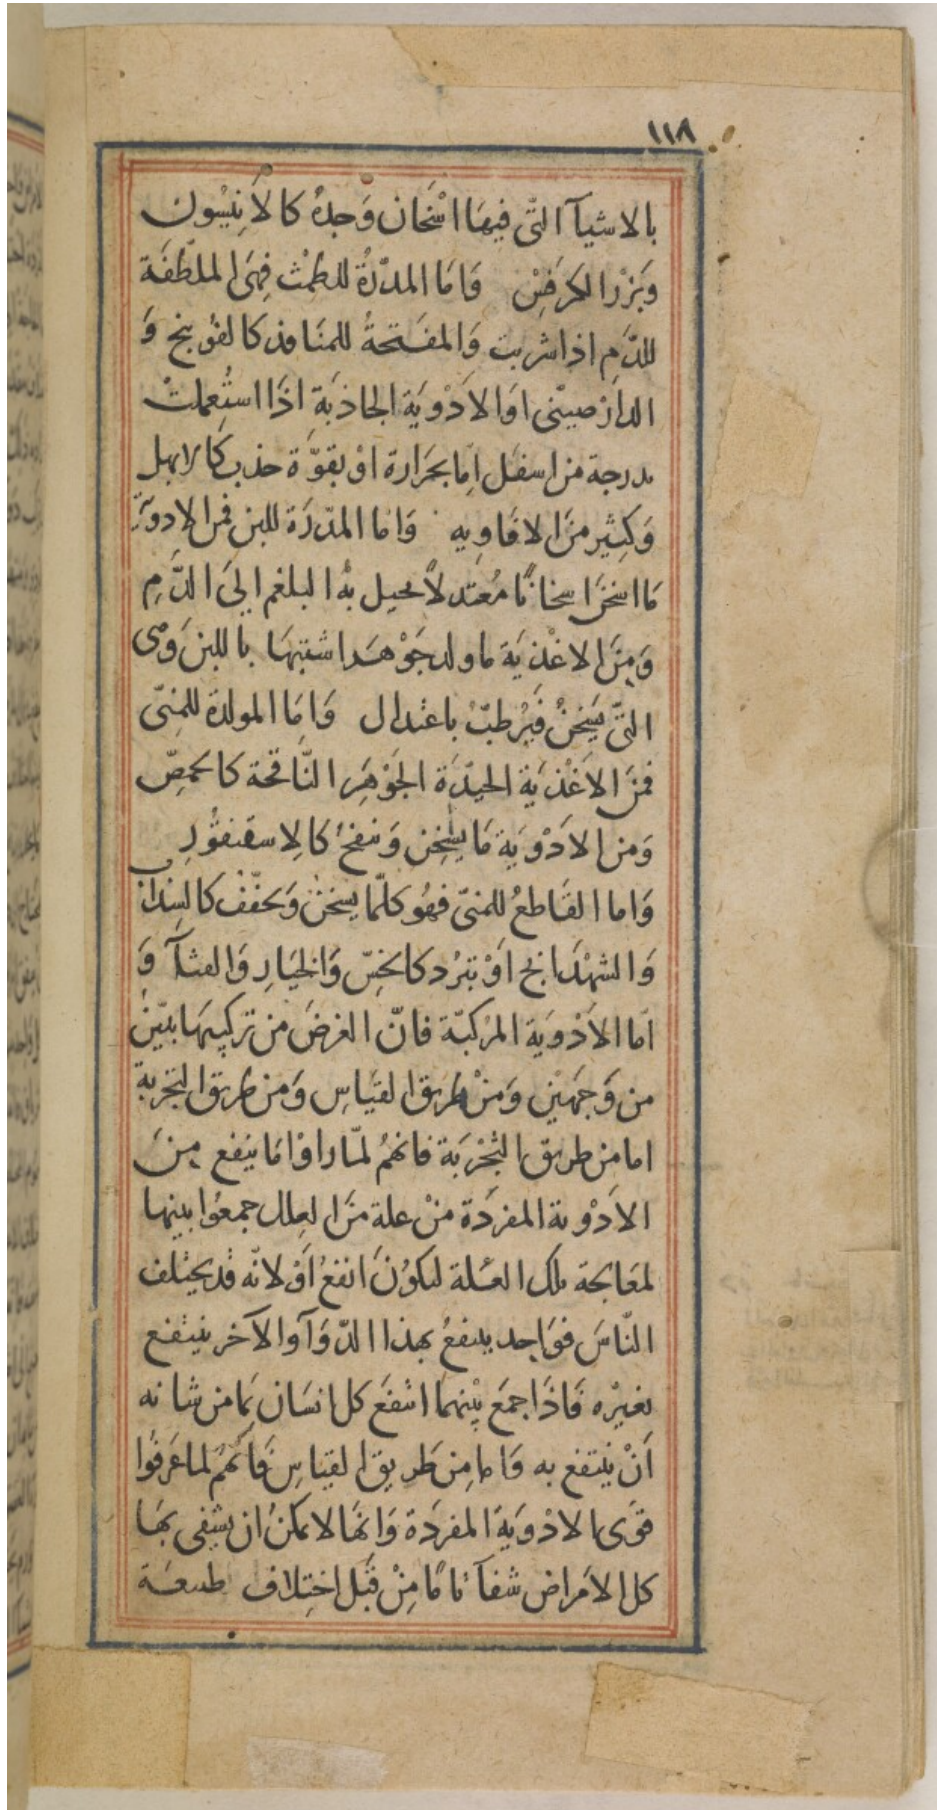 ١١٨
بالاشيآ التّى فيهَا اسْخَان وَحدهُ كالاَنِيسُون
وَبَزْر الكرَفسْ وَامَا المدّرةُ للطمْث فهىَ الملطفَة
للدَّمِ اذا شربت وَالمفَتحةُ للمنَافذ كالفوُبنج وَ
الدارْصينْى اوَ الاَدْوِيَة الجاذبَة اذَا استُعملتْ
مدرجة من اسفَل اِمّا بحَرارة اوْ بقوَّة جذب كالابهل
وَكثِير منَ الافَاوِيه وَامَا المدّرَة للبن فمن الادويَة
مَا اسخَن اسخانًا مُعتَدلاً يحيل بهُ البلغم الىَ الدَّمِ
وَمِنَ الاغْذيَة ما ولد جَوْهَرا شبيهَا باللبن وَهى
التّى يَسخنُ فَيُرْطبّ باعْتدال وَامَا المولدَة للمنِىّ
فمنَ الاَغْذيَة الجيدّة الجَوْهَرِ النَّافخة كالحمصّ
وَمن الاَدْوِيَة مَا يسْخِن وَينفخُ كالاسقنقُورِ
وَاما القَاطعُ للمنىّ فهُو كلّما يسخنُ وَيجفّف كالسَذاب
وَالشهْدَانج اوَْ تبْرد كالخسّ وَالخيَارِ وَالقثآ وَ
اَما الاَدْوِيَة المرَكبّة فانّ الغرضَ من تركيبهَا بيّن
من وَجهَيْن وَمنْ طريق القيَاسِ وَمن طريق التجْربة
اما من طريق التجْرَبَة فانهمُ لمّا راوْا مَا ينفع مِنَ
الاَدْوية المفرَدَة منْ علة منَ العلل جمعُوا بينها
لمعَالجة تلك العّلة ليكوُنَ انفعُ اوَْ لانّه قدْ يختْلف
النّاسَ فوَاحِد ينفعُ بهذا الدّوَآ وَالآخر ينتفع
بغيْره فَاذَا جمعَ بيْنهمَا انتفَعَ كل انسَان بمَا من شانه
اَنْ ينتفع به وَاما مِن طَريق القياسِ فَانّهمُ لما عَرفُوا
قوَى الادْوِيَة المفرَدَة وَانهَّا لا يمكنُ ان يشفى بهَا
كل الامَراض شفآ تامًا مِنْ قَبل اختِلاف طبيعَة